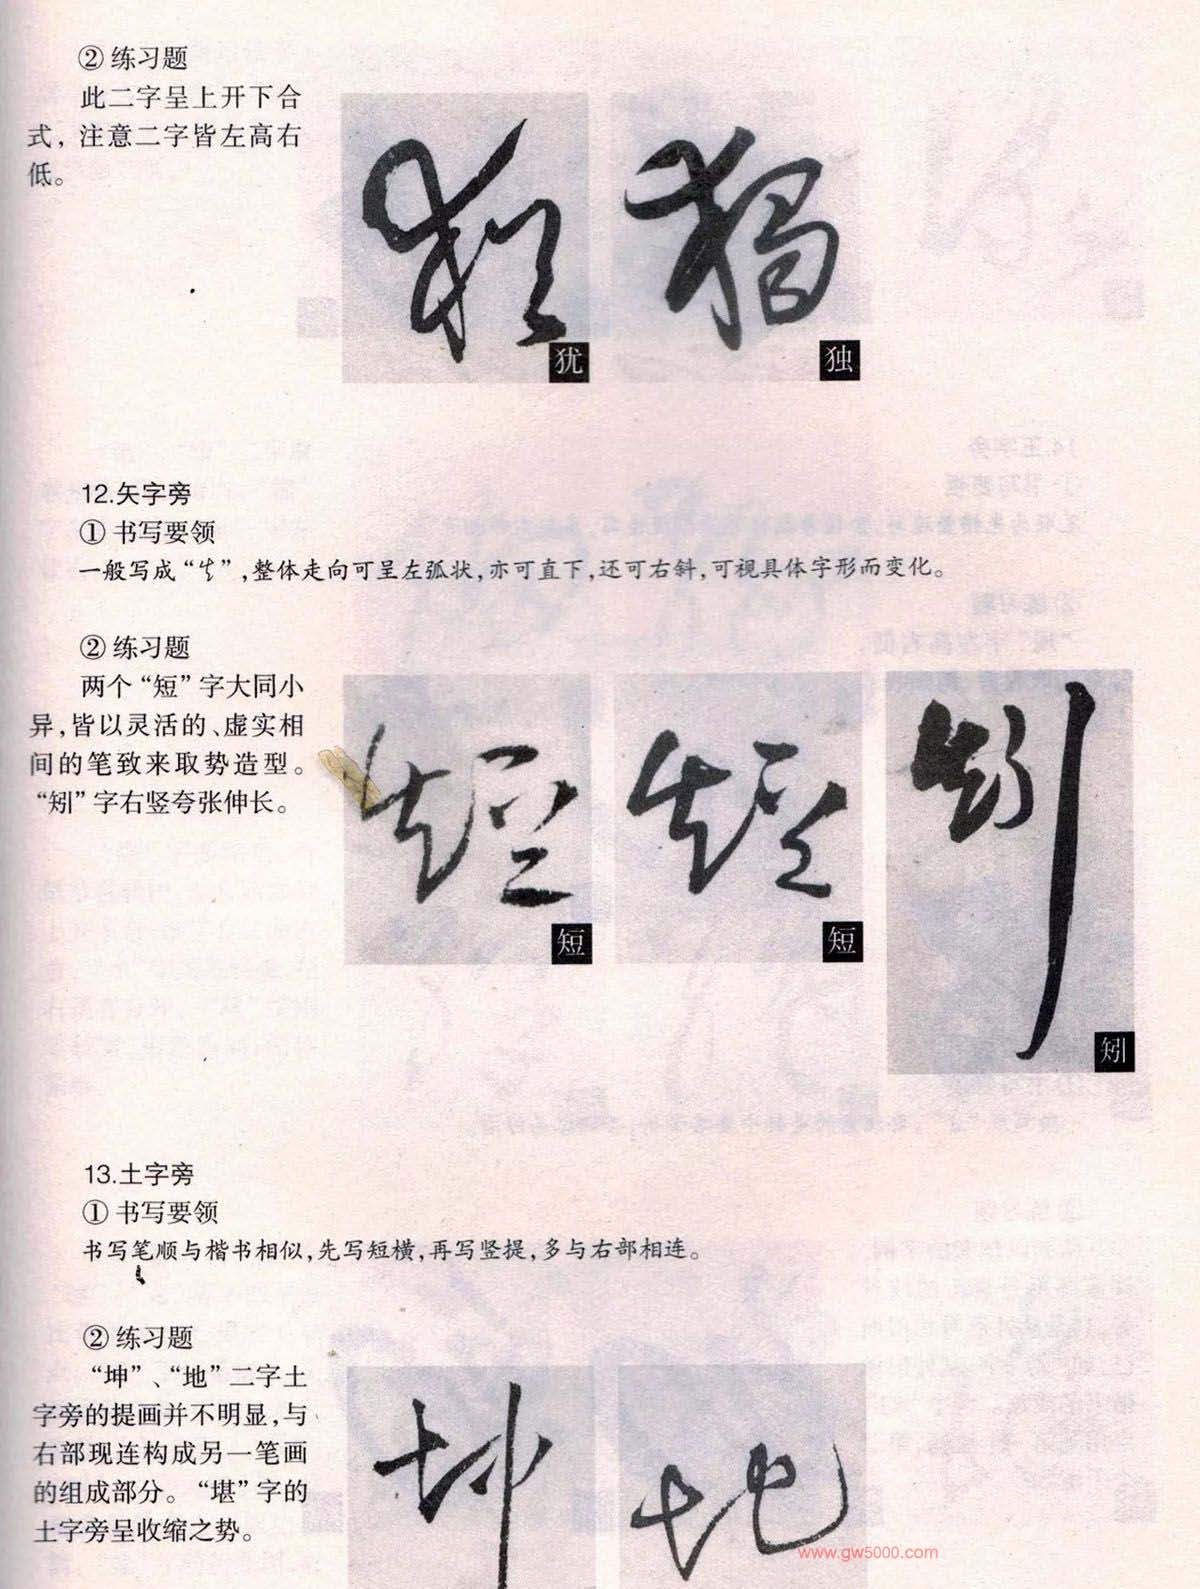 ② 练习题
此二字呈上开下合
式，注意二字皆左高右
低。
犹
独
12.矢字旁
① 书写要领
一般写成“ ”,整体走向可呈左弧状,亦可直下,还可右斜,可视具体字形而变化。
② 练习题
两个“短”字大同小
异,皆以灵活的、虚实相
间的笔致来取势造型。
“矧”字右竖夸张伸长。
短
短
矧
13.土字旁
① 书写要领
书写笔顺与楷书相似,先写短横,再写竖提,多与右部相连。
② 练习题
“坤”、“地”二字土
字旁的提画并不明显,与
右部现连构成另一笔画
的组成部分。“堪”字的
土字旁呈收缩之势。
www.gw5000.com